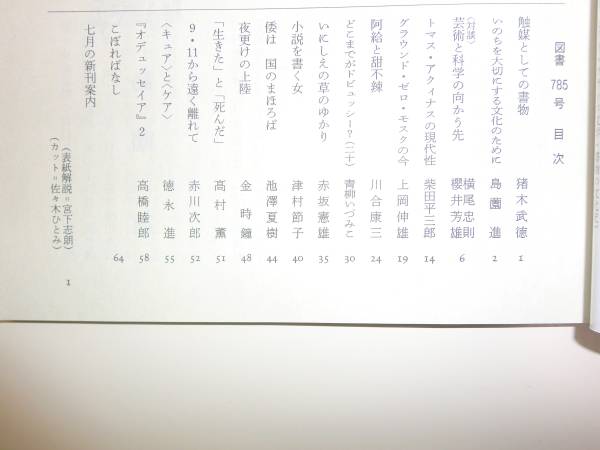 図書 785号 目次
触媒としての書物 猪木武徳 1
いのちを大切にする文化のために 島薗 進 2
〈対談〉
芸術と科学の向かう先 横尾忠則 櫻井芳雄 6
トマス・アクィナスの現代性 柴田平三郎 14
グラウンド・ゼロ・モスクの今 上岡伸雄 19
阿給と甜不辣 川合康三 24
どこまでがドビュッシー?(二十) 青柳いづみこ 30
いにしえの草のゆかり 赤坂憲雄 35
小説を書く女 津村節子 40
倭は 国のまほろば 池澤夏樹 44
夜更けの上陸 金 時鐘 48
「生きた」と「死んだ」 高村 薫 51
9・11から遠く離れて 赤川次郎 52
〈キュア〉と〈ケア〉 徳永 進 55
『オデュッセイア』2 高橋睦郎 58
こぼればなし 64
七月の新刊案内 1
(表紙解説=宮下志朗)
(カット=佐々木ひとみ)